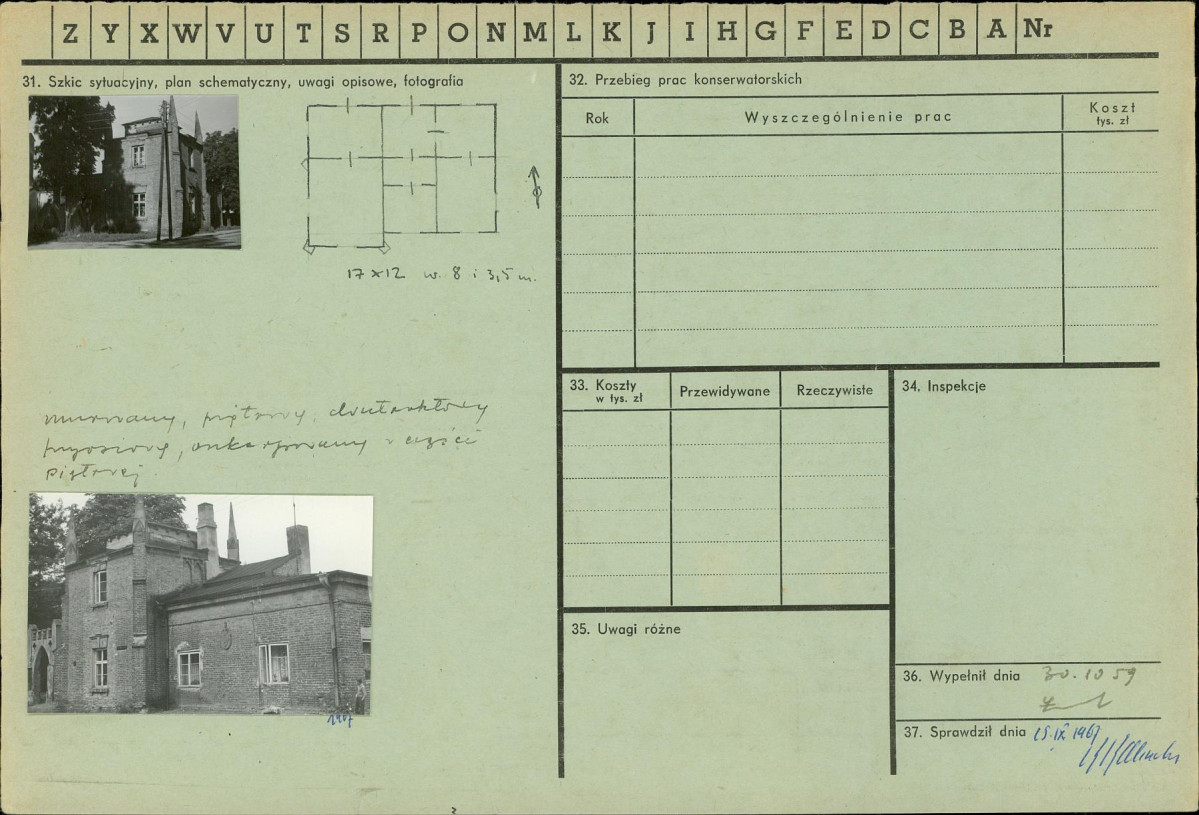 Z Y X W V U T S R P O N M L K J I H G F E D C B A Nr
31. Szkic sytuacyjny, plan schematyczny, uwagi opisowe, fotografia
17 x 12 w. 8 i 3,5 m.
murowany, piętrowy, dwutraktowy
piętrowej.
1967
32. Przebieg prac konserwatorskich
Rok
Wyszczególnienie prac
Koszt
tys. zł
33. Koszty
w tys. zł
Przewidywane
Rzeczywiste
34. Inspekcje
35. Uwagi różne
36. Wypełnił dnia 30.10 59
37. Sprawdził dnia 15.IX 1967